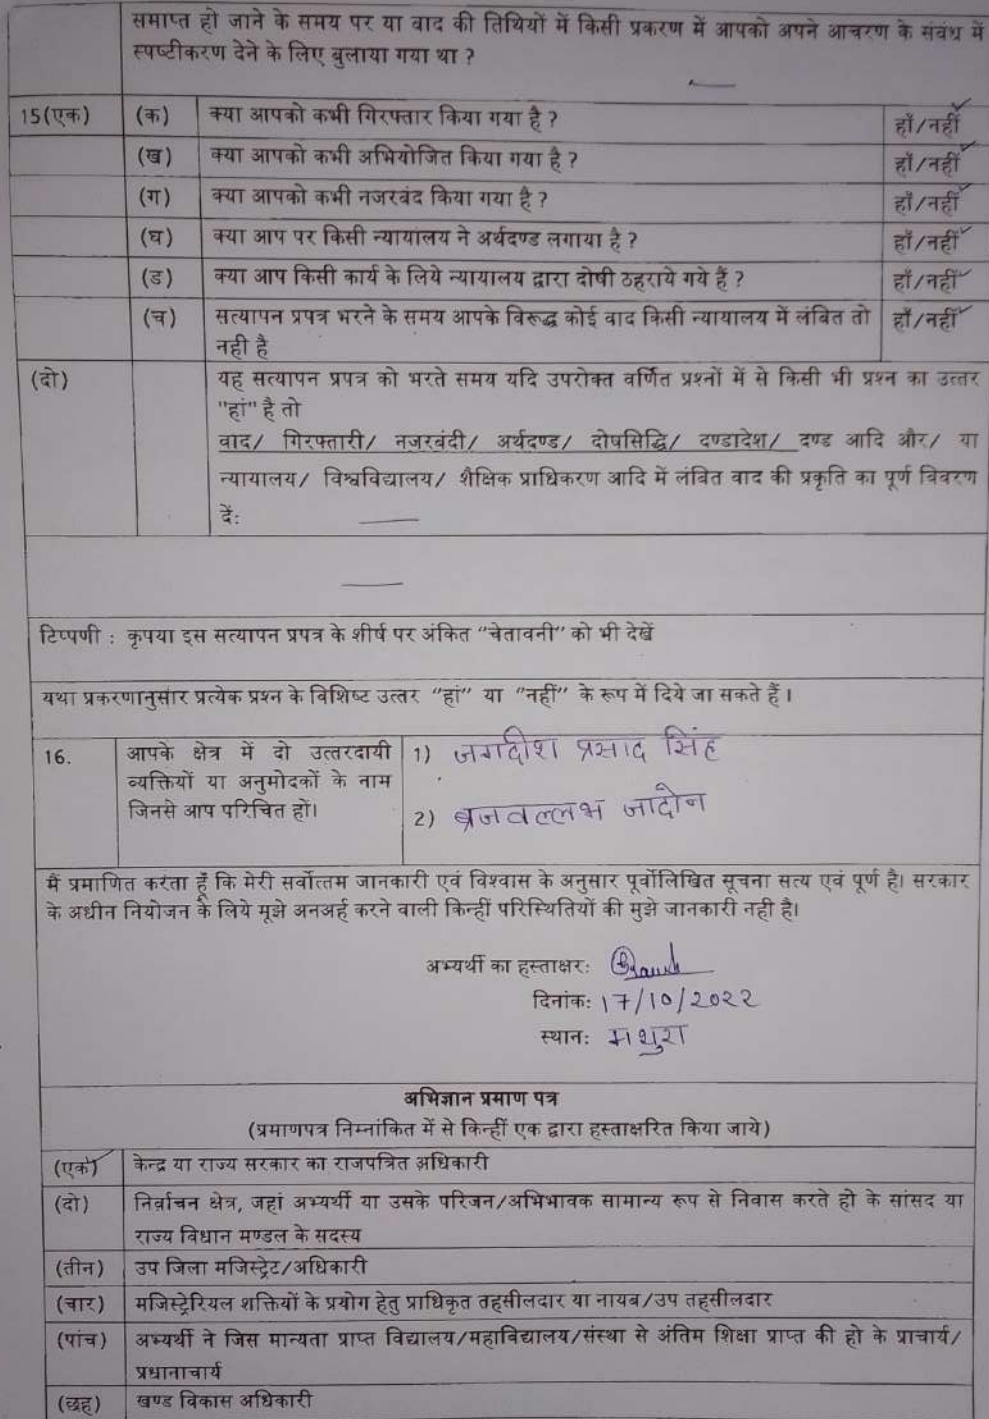 समाप्त हो जाने के समय पर या वाद की तिथियों में किसी प्रकरण में आपको अपने आचरण के संबंध में
स्पष्टीकरण देने के लिए बुलाया गया था ?
15(एक) (क) क्या आपको कभी गिरफ्तार किया गया है ? हाँ/नहीं
(ख) क्या आपको कभी अभियोजित किया गया है ? हाँ/नहीं
(ग) क्या आपको कभी नजरबंद किया गया है ? हाँ/नहीं
(घ) क्या आप पर किसी न्यायालय ने अर्थदण्ड लगाया है ? हाँ/नहीं
(ड) क्या आप किसी कार्य के लिये न्यायालय द्वारा दोषी ठहराये गये हैं ? हाँ/नहीं
(च) सत्यापन प्रपत्र भरने के समय आपके विरूद्ध कोई वाद किसी न्यायालय में लंबित तो हाँ/नहीं
नही है
(दो) यह सत्यापन प्रपत्र को भरते समय यदि उपरोक्त वर्णित प्रश्नों में से किसी भी प्रश्न का उत्तर
"हां" है तो
वाद/ गिरफ्तारी/ नज़रबंदी/ अर्थदण्ड/ दोषसिद्धि/ दण्डादेश/ दण्ड आदि और/ या
न्यायालय/ विश्वविद्यालय/ शैक्षिक प्राधिकरण आदि में लंबित वाद की प्रकृति का पूर्ण विवरण
दें:
टिप्पणी : कृपया इस सत्यापन प्रपत्र के शीर्ष पर अंकित "चेतावनी" को भी देखें
यथा प्रकरणानुसार प्रत्येक प्रश्न के विशिष्ट उत्तर "हां" या "नहीं" के रूप में दिये जा सकते हैं।
16. आपके क्षेत्र में दो उत्तरदायी 1) जगदीश प्रसाद सिंह
व्यक्तियों या अनुमोदकों के नाम
जिनसे आप परिचित हों। 2) ब्रजवल्लभ जादोन
मैं प्रमाणित करता हूँ कि मेरी सर्वोत्तम जानकारी एवं विश्वास के अनुसार पूर्वोलिखित सूचना सत्य एवं पूर्ण है। सरकार
के अधीन नियोजन के लिये मूझे अनअर्ह करने वाली किन्हीं परिस्थितियों की मुझे जानकारी नही है।
अभ्यर्थी का हस्ताक्षर:
दिनांक: 17/10/2022
स्थान: मथुरा
अभिज्ञान प्रमाण पत्र
(प्रमाणपत्र निम्नांकित में से किन्हीं एक द्वारा हस्ताक्षरित किया जाये)
(एक) केन्द्र या राज्य सरकार का राजपत्रित अधिकारी
(दो) निर्वाचन क्षेत्र, जहां अभ्यर्थी या उसके परिजन/अभिभावक सामान्य रूप से निवास करते हो के सांसद या
राज्य विधान मण्डल के सदस्य
(तीन) उप जिला मजिस्ट्रेट/अधिकारी
(चार) मजिस्ट्रेरियल शक्तियों के प्रयोग हेतु प्राधिकृत तहसीलदार या नायब/उप तहसीलदार
(पांच) अभ्यर्थी ने जिस मान्यता प्राप्त विद्यालय/महाविद्यालय/संस्था से अंतिम शिक्षा प्राप्त की हो के प्राचार्य/
प्रधानाचार्य
(छह) खण्ड विकास अधिकारी